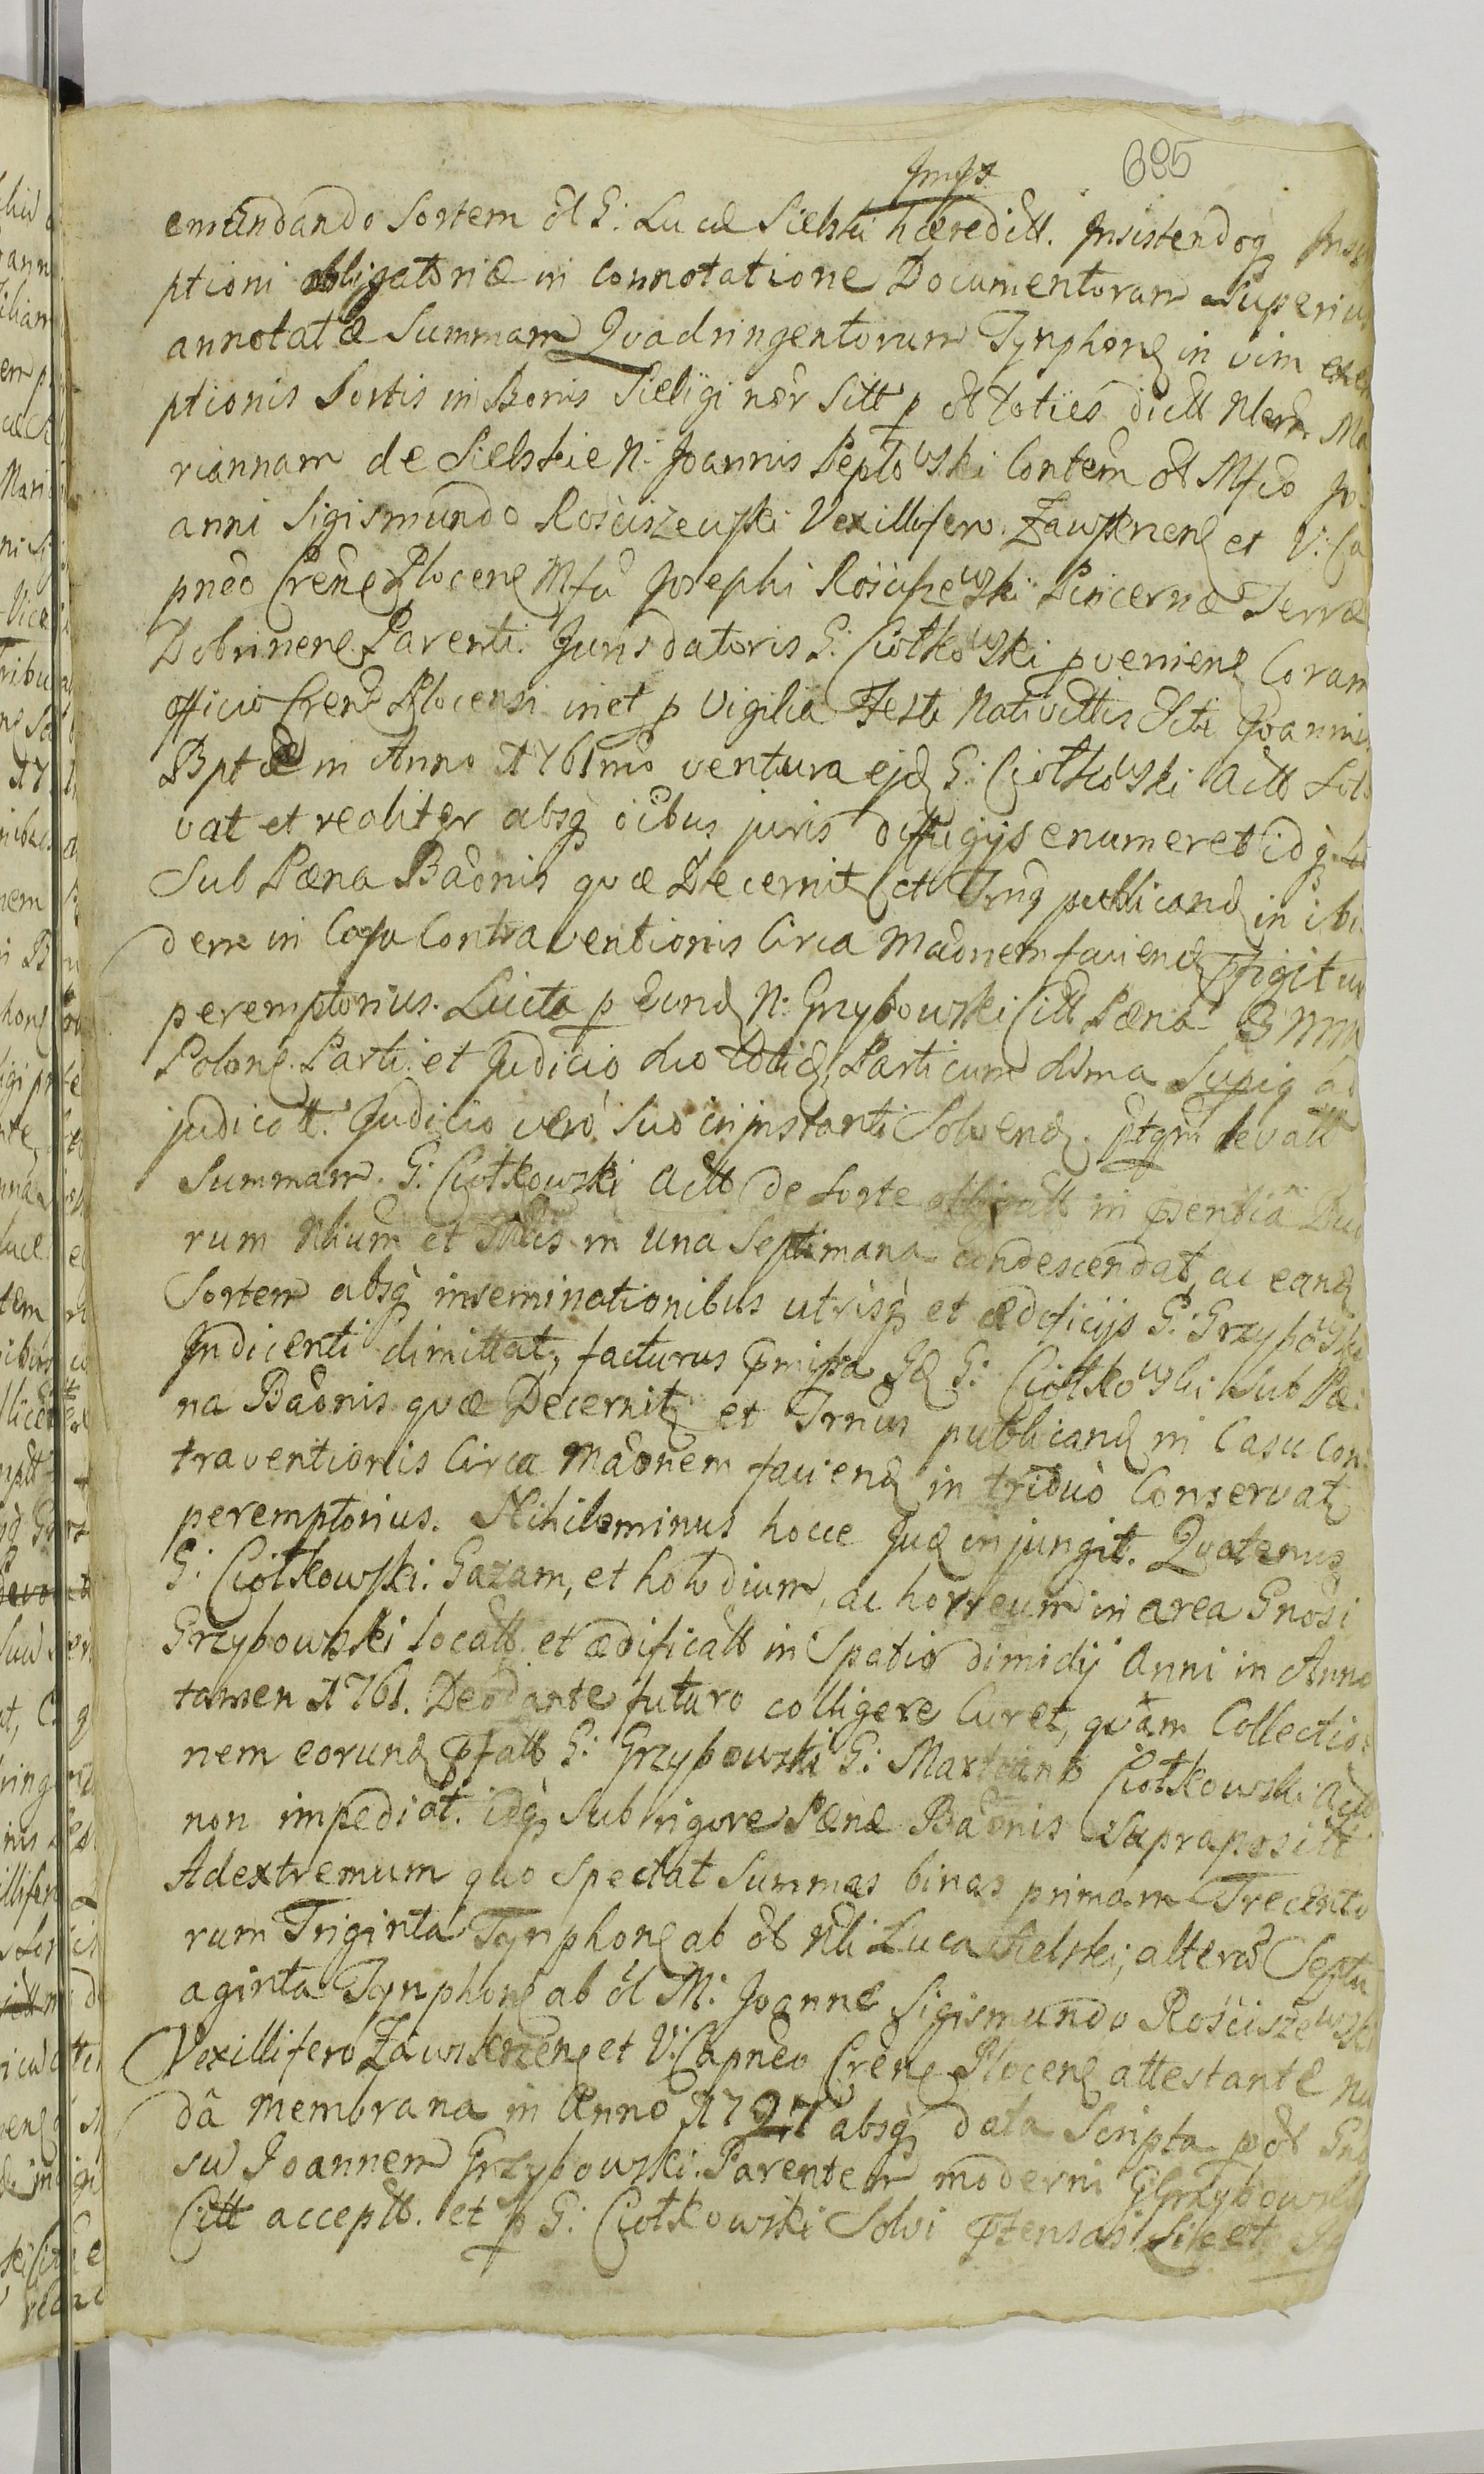 685
Impt.
emundando Sortem ol G: Lucæ Sielski hæreditt. Insistendoq Inscri
ptioni obligatoriæ in Connotatione Documentorum Superius
annotatæ Summam Quadringentorum Tynphonę in vim exem
ptionis Sortis in Bonis Sieligi nõr Sitt p ol toties dictt Nlem Ma
riannam de Sielskie N: Joannis Peplowski Contem ol Mfco Jo
anni Sigismundo Rościszewski Vexillifero Zawskrnenę et V: Ca
pneo Crenę Plocenę Mfci Josephi Rościszewski Pincernæ Terræ
Dobrinenę Parenti. Juris datoris G: Ciołkowski pvenienę Coram
officio Crenę Plocensi iniet p Vigilia Festi Nativittis Scti Joannis
Bptæ in Anno 1761mo ventura ejdę G: Ciołkowski actt Sol
vat et realiter absq oibus juris diffugijs enumeret idq
Sub Pæna Baõnis quæ Decernitę et Trnq publicandę in ibi
dem in Casu Contraventionis Circa Maõnem faciendę Pfigitur
peremptorius. Luicta p Eundę N: Grzybowski Citt Pæna
Polonę. Parti et Judicio suo totidę, Parti cum Asma Supiq ad
judicatt. Judicio vero suo in instanti Solvendę. ptqm levatt
Summam. G: Ciołkowski actt de Sorte obligatt in Psentia Duo
rum Nlium et Mlis in una Septimana Condescendat, ac eandę
Sortem absq inseminationibus utrisq et ædeficijs G: Grzybowski
Indicenti dimittat, facturus Pmissa Idę G: Ciołkowski Sub Pæ
na Baõnis quæ Decernitę et Trnus publicandę in Casu Con
traventionis Circa Maõnem faciendę in triduo Conservatę
peremptorius. Nihilominus hocce Judę injungit. Quatenus
G: Ciołkowski: Gazam, et holodium, ac horreum in area Gnosi
Grzybowski locatt et ædificatt in Spatio dimidij Anni in Anno
tamen 1761. Deo dante futuro colligere Curet, quam Collectio
nem eorundę Pfatt G: Grzybowski G: Martiano Ciołkowski actt
non impediat. idq Sub rigore Pænæ Baõnis Supraposittę
Adextremum quo Spectat Summas binas primam Trecento
rum Triginta Tynphonę ab ol Nli Luca Sielski, alteram Septu
aginta Tynphonę ab ol M: Joanne Sigismundo Rościszewski
Vexillifero Zawskrzenę et V: Capneo Crenę Plocenę attestante nu
da membrana in Anno 1727 absq data Scripta p ol Gno
su Joannem Grzybowski. Parentem moderni G Grzybowski
Citt acceptt. et p G: Ciołkowski Solvi Ptensas Licet